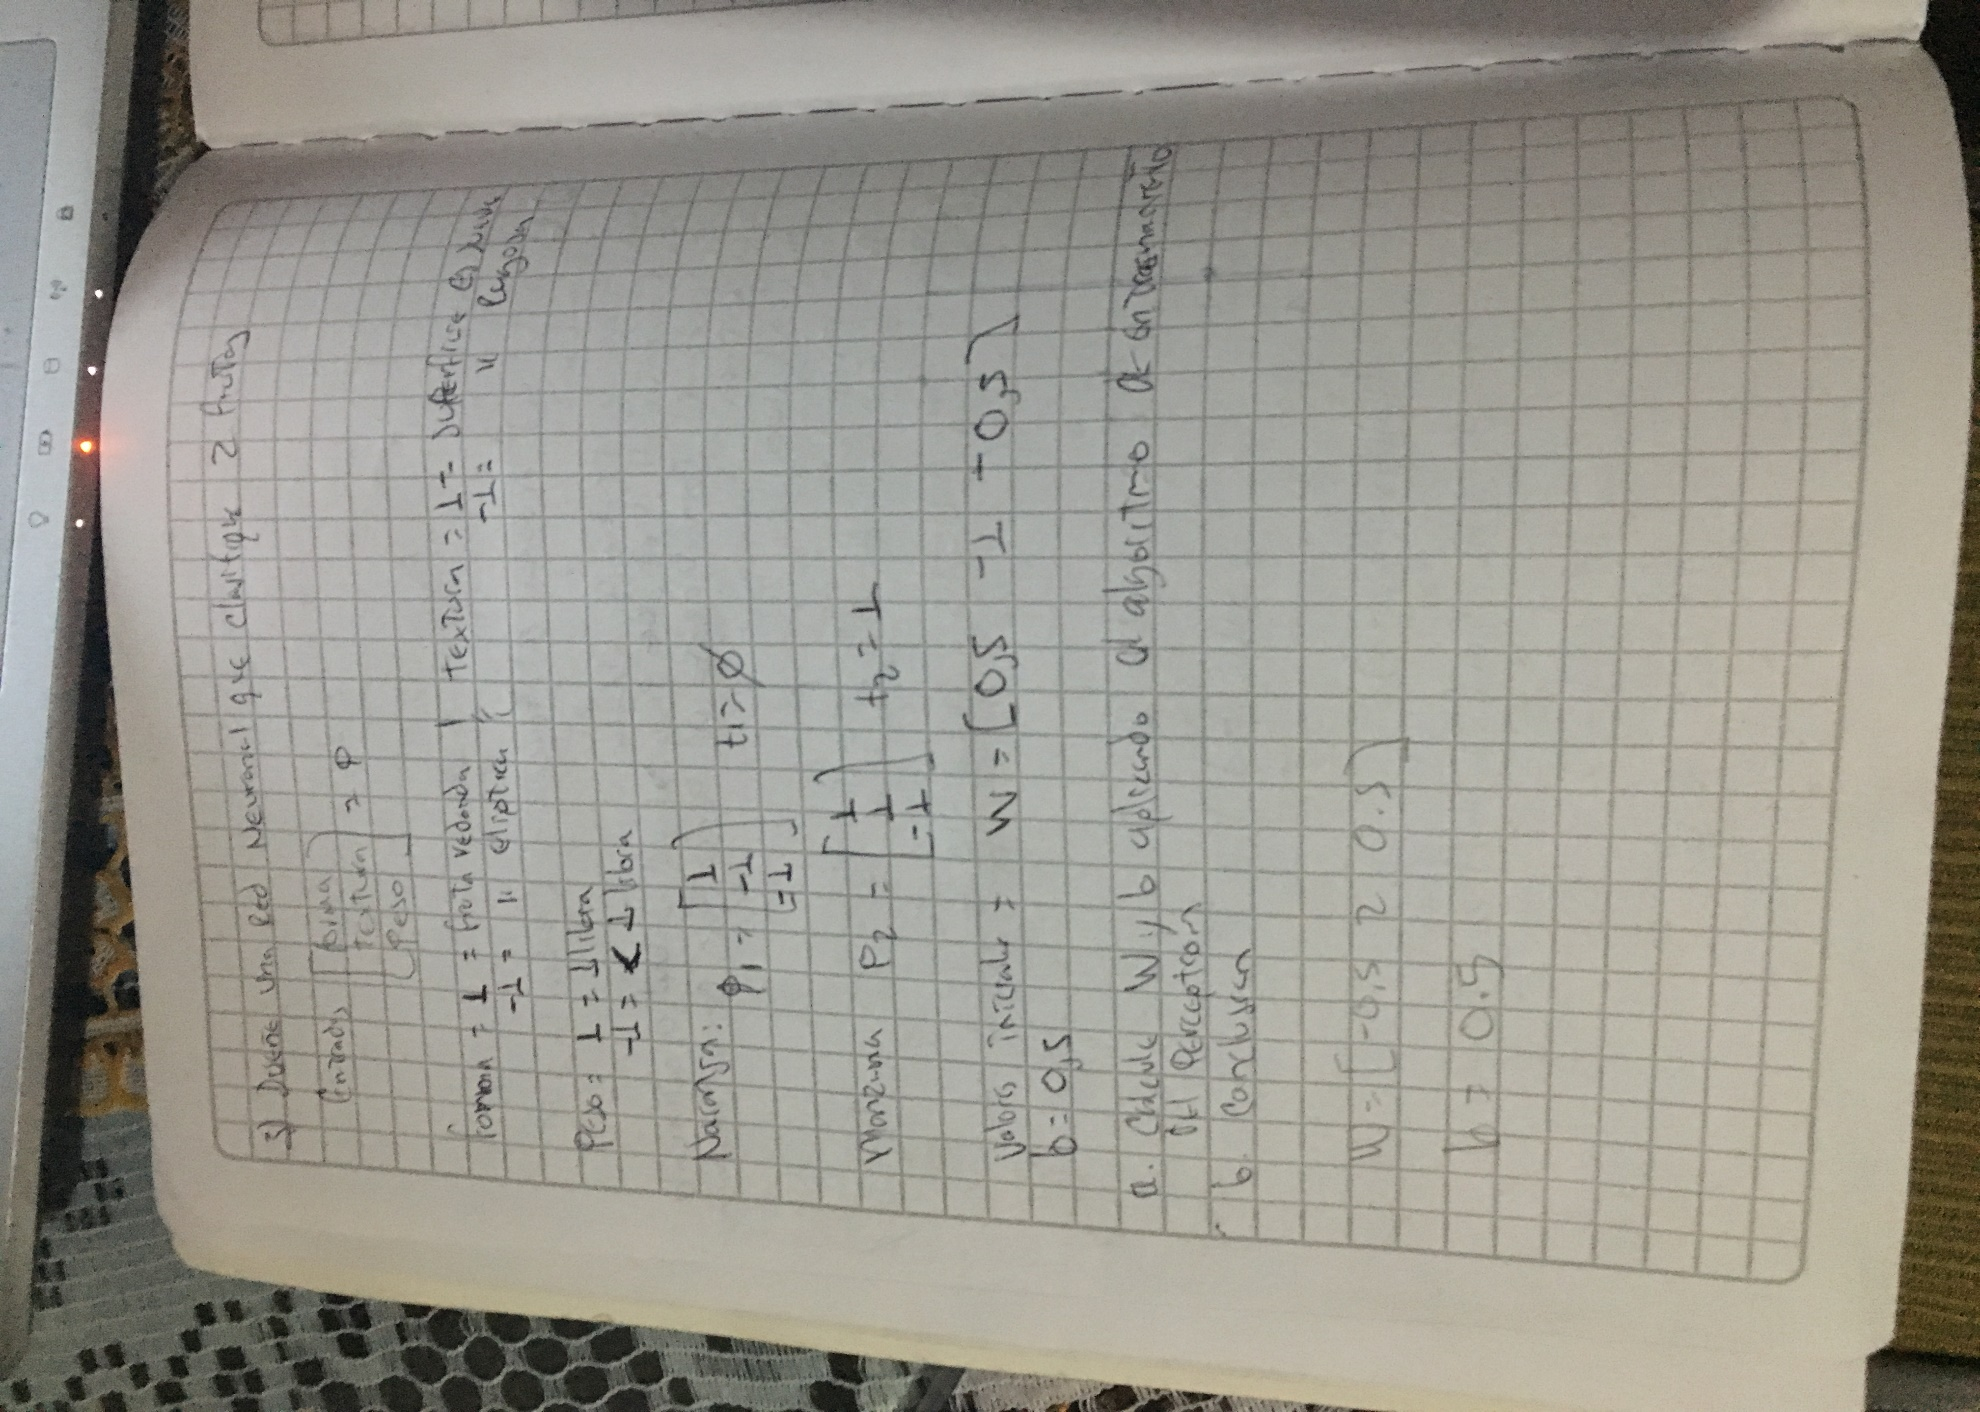 3) Diseñe una Red Neuronal que clasifique 2 frutas
Entradas [forma
Textura
Peso] = P
forma = 1 = fruta redonda | Textura = 1 = superficie es suave
-1 = " eliptica -1 = " rugosa
Peso = 1 = 1 libra
-1 = < 1 libra
Naranja: P1 = [1
-1
-1] t1 = Ø
Manzana P2 = [1
1
-1] t2 = 1
Valores iniciales = W = [0,5 -1 -0,5]
b = 0,5
a. Calcule W y b aplicando el algoritmo de entrenamiento
del Perceptron
b. Conclusion
W = [-0,5 2 0.5]
b = 0.5